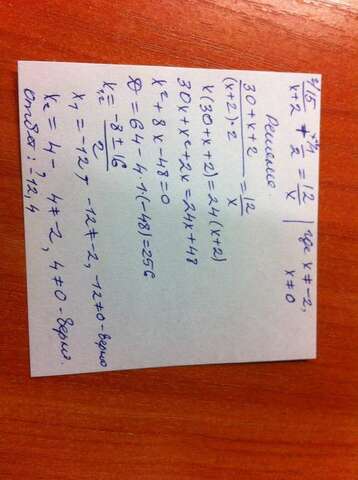 2/ 15/(x+2) + x+2/ 1/2 = 12/x | где x ≠ -2, x ≠ 0
Решение.
(30+x+2)/((x+2)·2) = 12/x
x(30+x+2)=24(x+2)
30x+x²+2x=24x+48
x²+8x-48=0
D=64-4·1·(-48)=256
x₁,₂=(-8±16)/2
x₁=-12, -12≠-2, -12≠0-верно
x₂=4- 4≠-2, 4≠0-верно.
Ответ: -12, 4